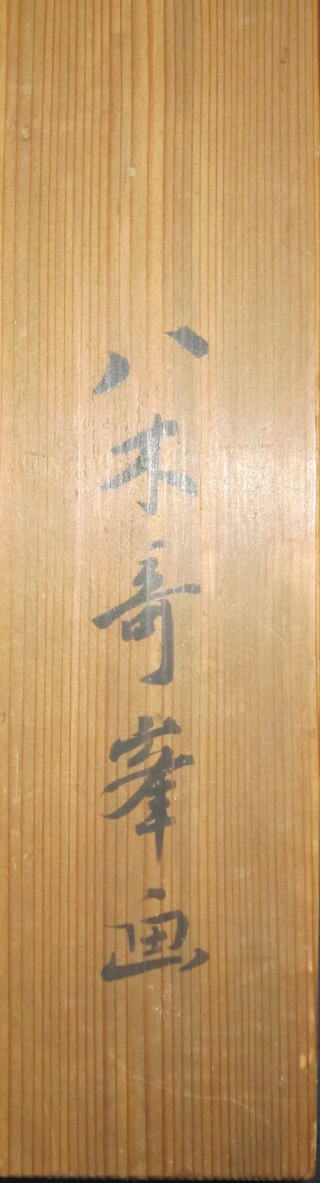 八木奇峯画